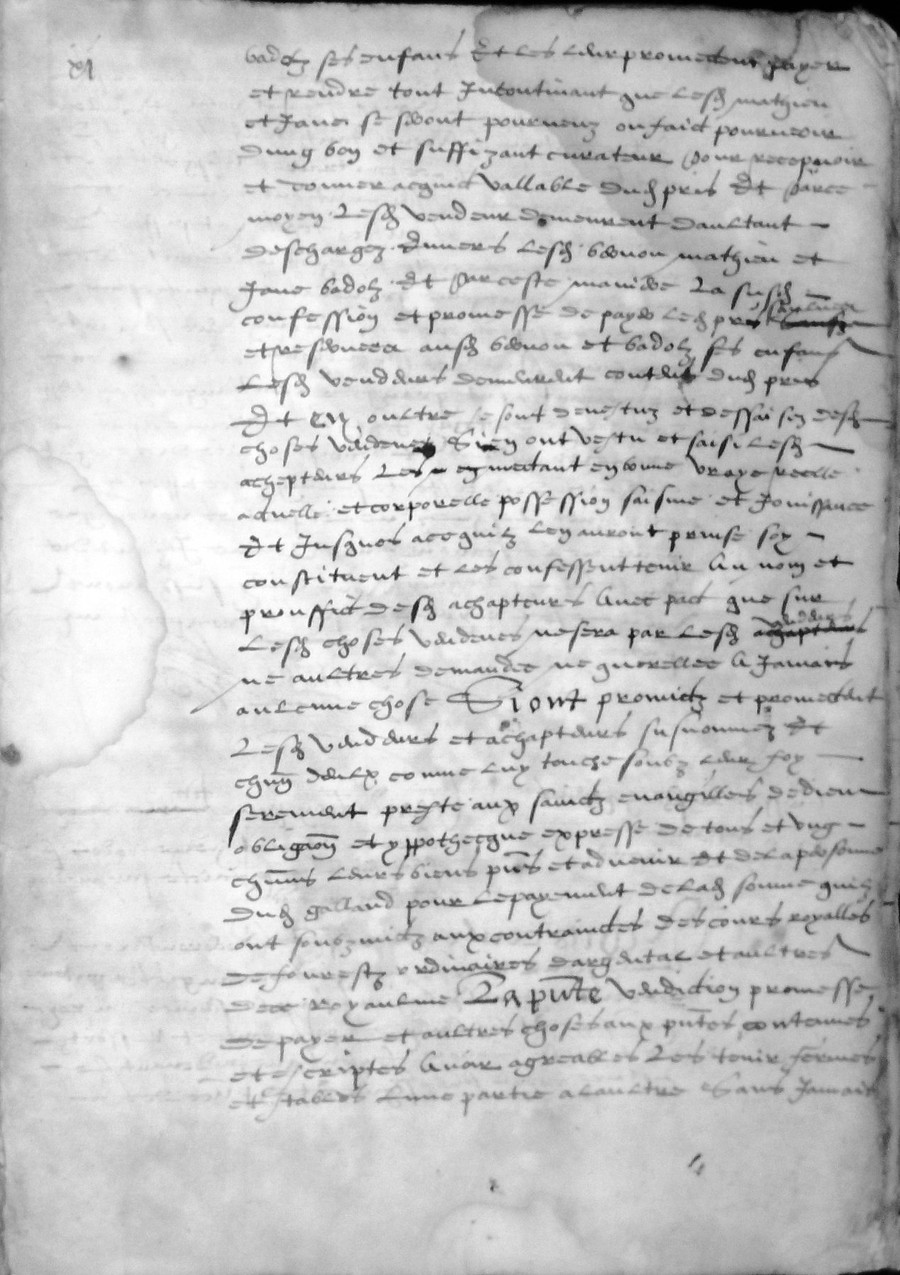 xj
badolz ses enfans Et les leur promectent payer
et rendre tout Incontinant que lesd mathieu
et Jane se seront pourveuz ou faict pourveoir
dung bon et suffizant curateur pour recepvoir
et donner acquict vallable dud pris Et par ce
moyen lesd vendeur demeurent daultant
deschargez envers lesd mathieu et
Jane badolz Et par ceste maniere La susd
confession et promesse de payer led pris
et reservee ausd et badolz ses enfans
lesd vendeurs demeurent contens dud pris
Et en oultre se sont devestuz et dessaisiz desd
choses vendues Si en ont vestu et saisi lesd
achepteurs Les en mectant en bonne vraye reelle
actuelle et corporelle possession saisine et Jouissance
Et Jusques ace quilz len auront prinse soy
constituent et les confessent tenir Au nom et
prouffict desd achapteurs Avec pact que sur
lesd choses vendues ne sera par lesd vendeurs
ne aultres demandee ne querellee A Jamais
aulcune chose Si ont promictz et promectent
Lesd vendeurs et achapteurs susnommez Et
chun deulx comme luy touche soubz leur foy
serement preste aux sainctz euangilles de dieu
obligaon et yppothecque expresse de tous et ung
chuns leurs biens pns et advenir Et de la personne
dud galland pour le payement de lad somme quilz
ont soubzmictz aux contrainctes des cours royalles
de fourestz ordinaires dargental et aultres
de ce royaulme La pnte vendicion promesse
de payer et aultres choses aux pntes contenues
et escriptes Avoir agreables Les tenir fermes
et stables Lune partie a laultre Sans Jamais